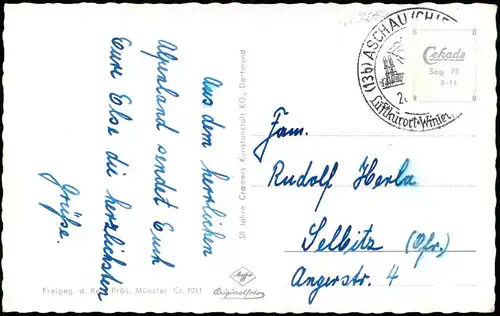 Aus dem herrlichen
Alpenland sendet Euch
Eure Else die herzlichsten
Grüße.
50 Jahre Cramers Kunstanstalt KG., Dortmund
Freigeg. d. Reg. Präs. Münster Cr. 3911
Agfa
Originalfoto
(13b) ASCHAU (CHI
Luftkurort + Winter
Cekade
Sag 75
8-15
Fam.
Rudolf Herla
Selbitz (Ofr.)
Angerstr. 4